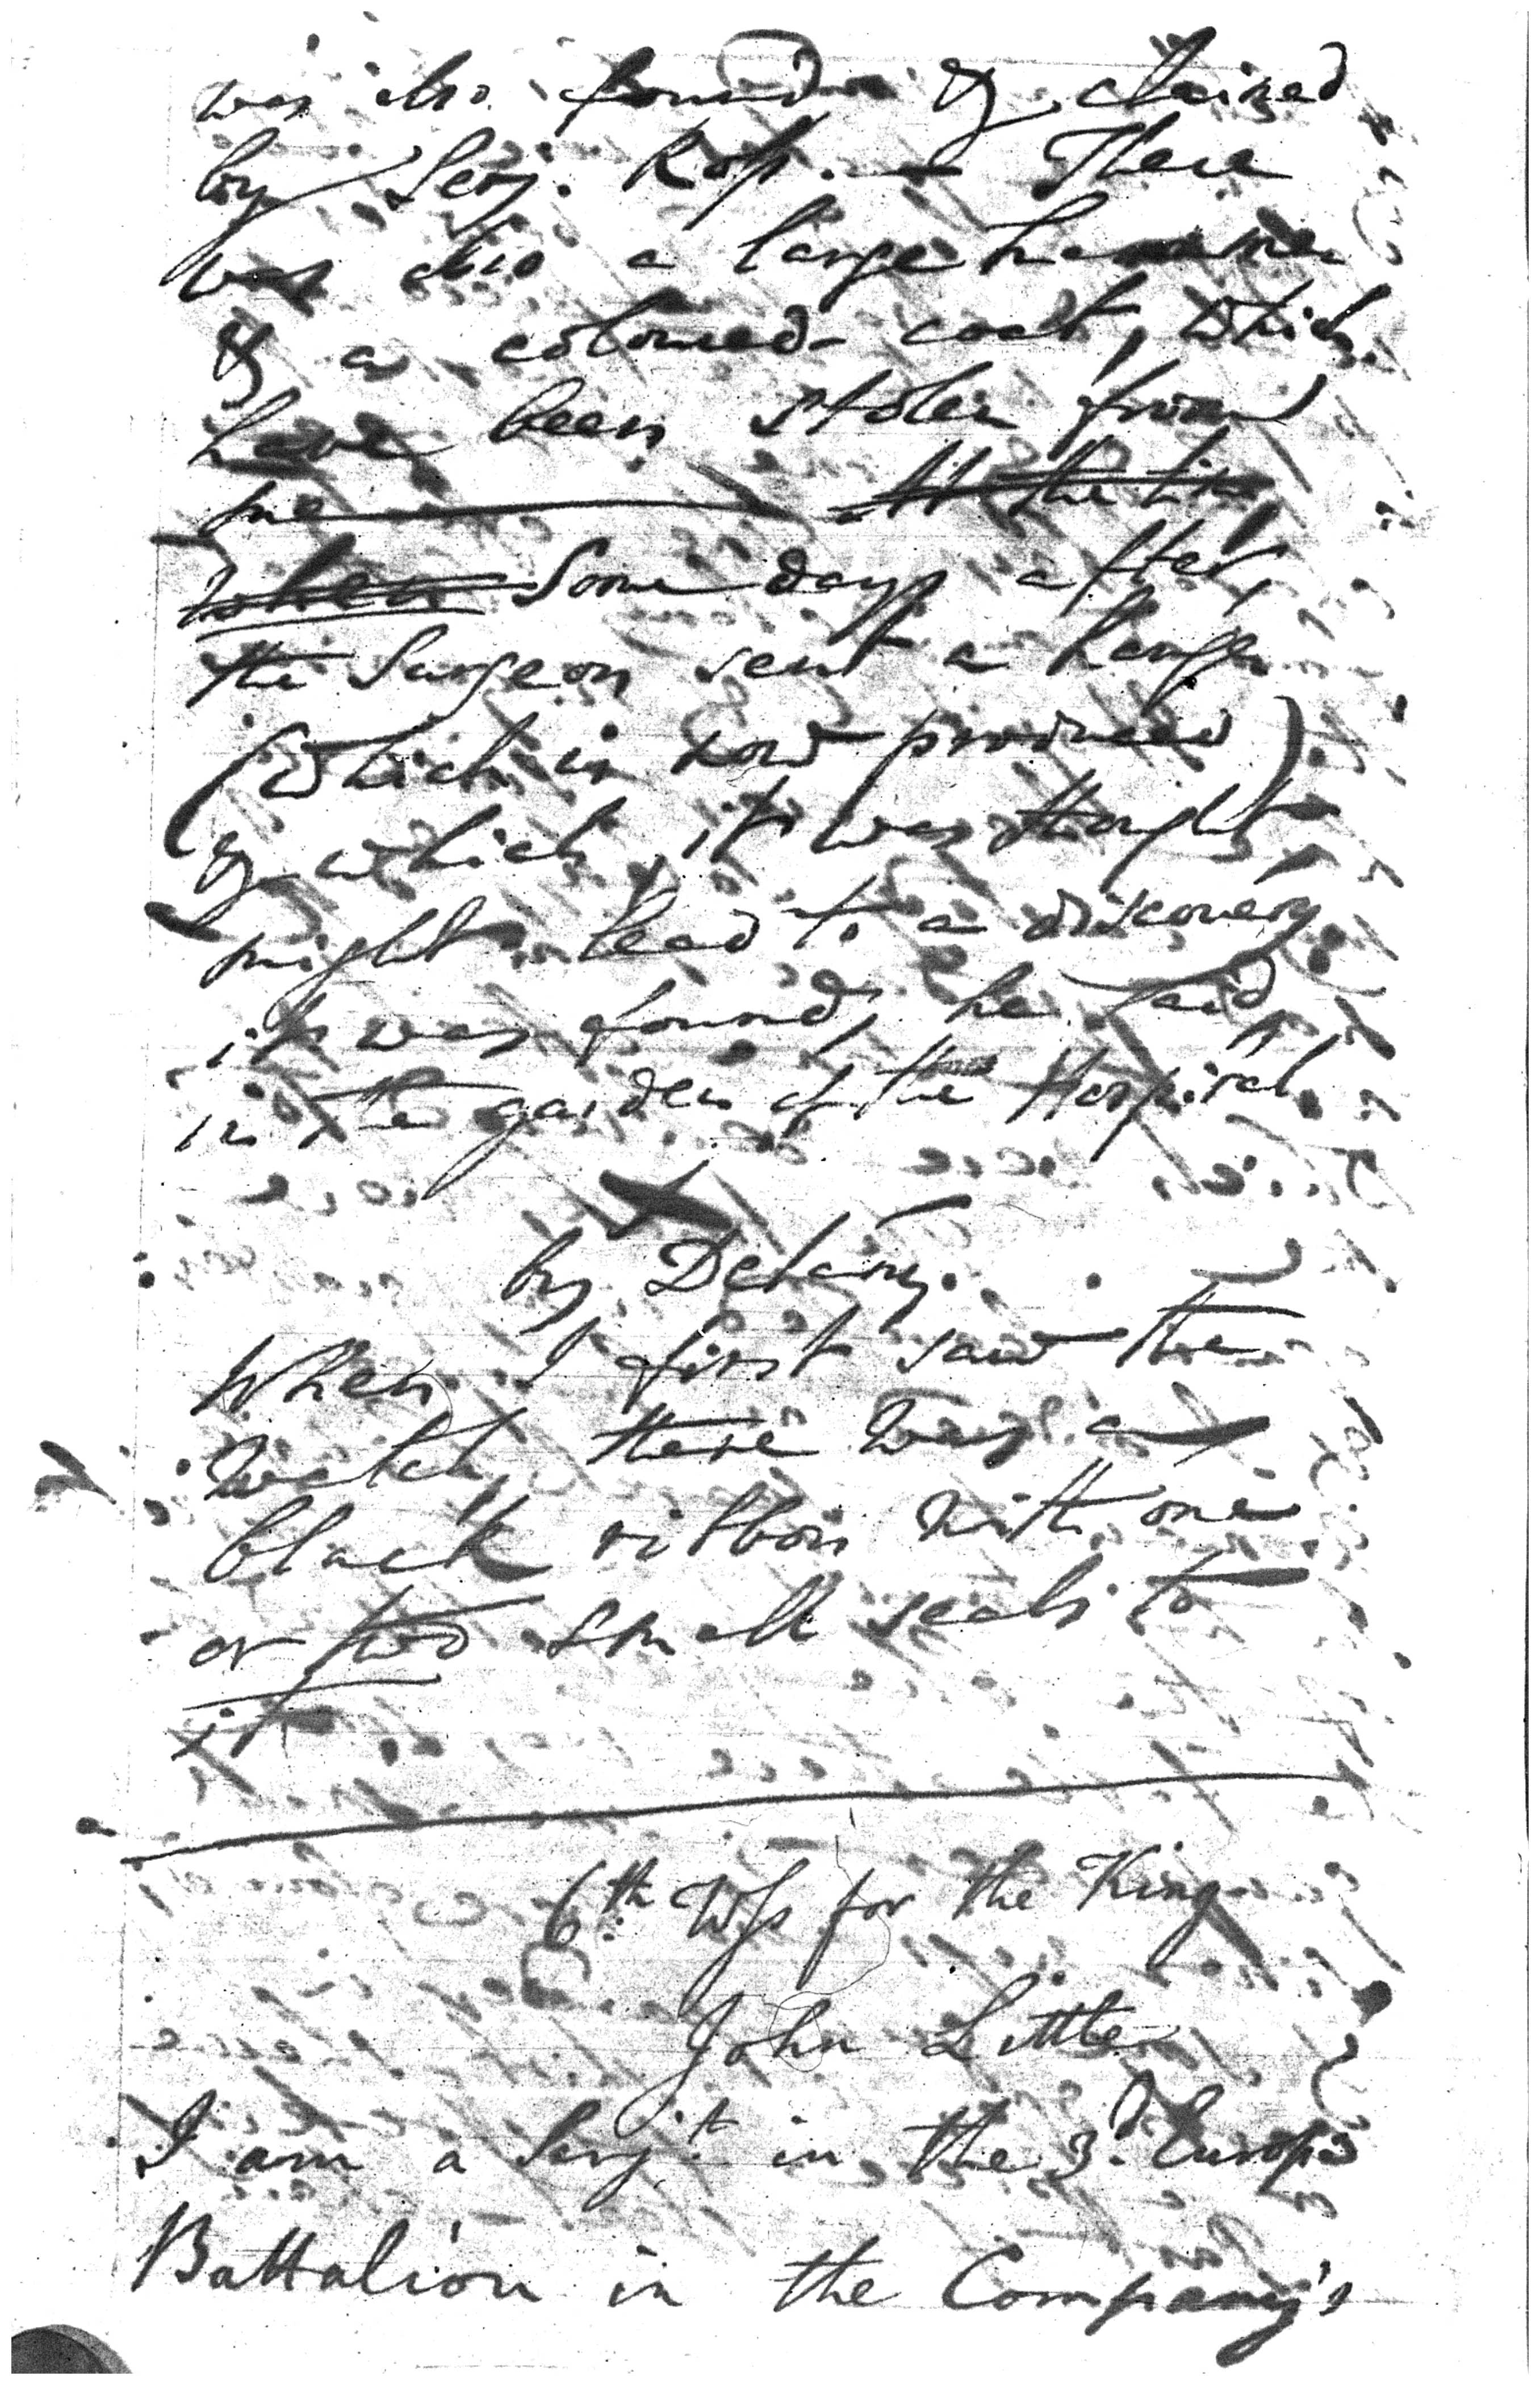 was also found & claimed
by Serj. Ross. — There
was also a large hammer
& a coloured coat, which
have been stolen from
me — At the time
When Some days after,
the Surgeon sent a hanger
(which is now produced)
& which, it was thought
might lead to a discovery
it was found, he said,
in the garden of the Hospital
by Delany.
When I first saw the
watch, there was a
black ribbon with one
or two small seals to
it
6th Wss for the King
John Little
I am a Serjt in the 3d Europn
Battalion in the Company's